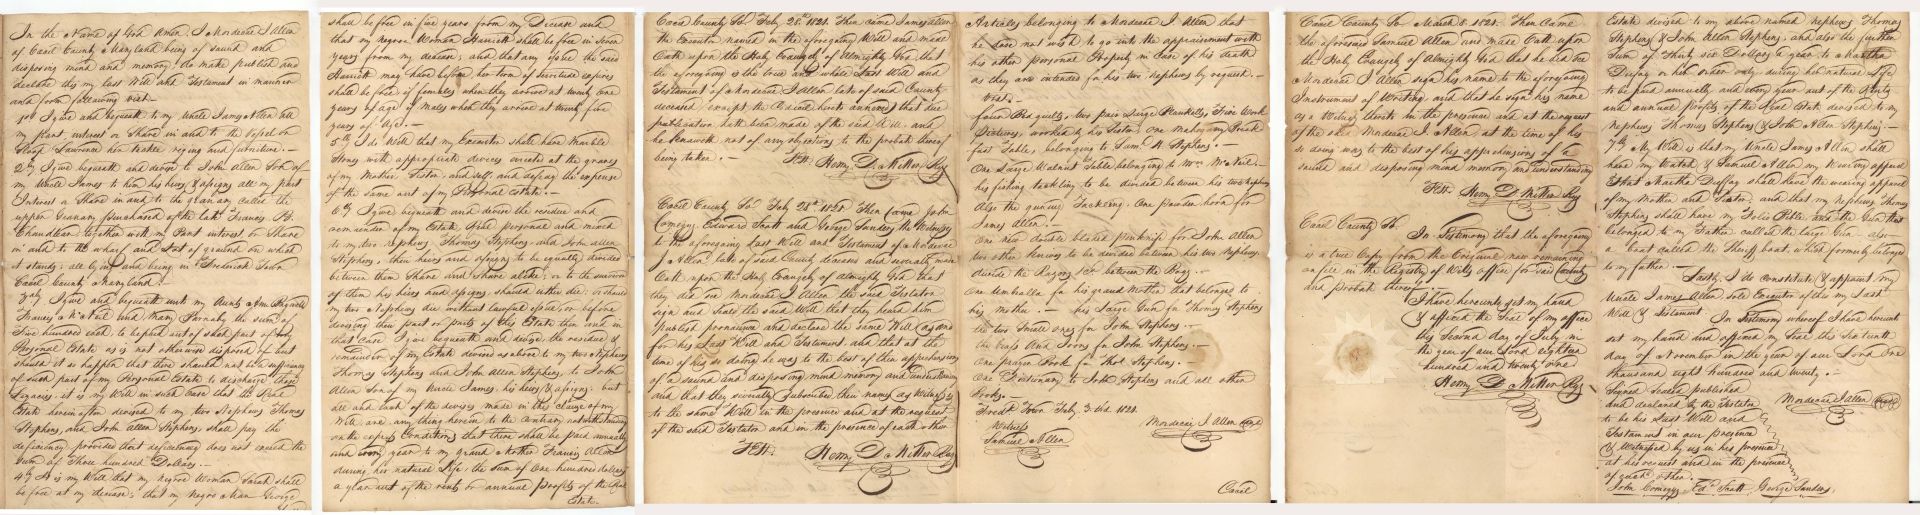 In the Name of God Amen. I Mordecai I Allen
of Cecil County Maryland being of sound and
disposing mind and memory do make publish and
declare this my last Will and Testament in manner
and form following viz.—
1st I give and bequeath to my Uncle James Allen all
my part, interest or Share in and to the Vessel or
Sloop Lawrence her tackle and furniture.—
2dly I give bequeath and devise to John Allen Son of
my Uncle James to him his heirs & assigns all my part
Interest or Share in and to the granary called the
upper Granary purchased of the late Francis B.
Chandlear together with my part interest or Share
in and to the wharf and Lot of ground on which
it stands; all lying and being in Frederick Town
Cecil County Maryland.—
3dly I give and bequeath unto my Aunts Ann
Frances McNeil and Mary Parnaby the sum of
Five hundred each, to be paid out of such part of my
Personal Estate as is not otherwise disposed of but
should it so happen that there should not be a sufficiency
of such part of my Personal Estate to discharge these
Legacies, it is my Will in such case that the Real
Estate herein after devised to my two Nephews Thomas
Stephens, and John Allen Stephens, shall pay the
deficiency provided that deficiency does not exceed the
Sum of Three hundred Dollars.—
4th It is my Will that my negro Woman Sarah shall
be free at my decease; that my negro Man George
shall be free in five years from my Decease and
that my negro Woman Harriett shall be free in seven
years from my decease; and that any issue the said
Harriett may have before her term of Servitude expires
shall be free if females when they arrive at twenty one
years of age if males when they arrive at twenty five
years of age.—
5th I do Will that my Executor shall have Marble
Stones with appropriate devices erected at the graves
of my Mother, Sister, and self; and defray the expense
of the same out of my Personal Estate.—
6th I give bequeath and devise the residue and
remainder of my Estate Real personal and mixed
to my two nephews Thomas Stephens and John Allen
Stephens, their heirs and assigns to be equally divided
between them Share and Share alike; or to the survivor
of them his heirs and assigns, should either die: or should
my two Nephews die without lawful issue, or before
devising their part or parts of this Estate then and in
that Case I give bequeath and devise the residue &
remainder of my Estate devised as above to my two Nephews
Thomas Stephens and John Allen Stephens, to John
Allen Son of my Uncle James, his heirs & assigns: but
all and each of the devises made in this clause of my
Will are, any thing herein to the contrary notwithstanding
on the express Condition, that there shall be paid annually
and every year to my grand Mother Francis Allen
during her natural Life, the sum of One hundred dollars
a year out of the rents or annual profits of the Real
Estate
Cecil County Sct. Feb. 28th 1821. Then came James Allen
the Executor named in the aforegoing Will and made
Oath upon the Holy Evangely of Almighty God, that
the aforegoing is the true and whole Last Will and
Testament of Mordecai I Allen late of said County
deceased, except the Codicil hereto annexed that due
publication hath been made of the said Will, and
he knoweth not of any objections to the probate thereof
being taken.—
Test. Henry D. Miller Reg
Cecil County Sct. Feb. 28th 1821. Then Came John
Comegys Edward Scott and George Sanders the Witnesses
to the aforegoing Last Will and Testament of Mordecai
I Allen late of said County deceased and severally made
Oath upon the Holy Evangely of Almighty God that
they did see Mordecai I Allen the said Testator
sign and Seal the said Will that they heard him
Publish pronounce and declare the same Will as and
for his Last Will and Testament, and that at the
time of his so doing he was to the best of their apprehensions
of a sound and disposing mind memory and understanding
and that they severally Subscribed their names as Witnesses
to the same Will in the presence and at the request
of the said Testator and in the presence of each other
Test. Henry D Miller Reg
Articles belonging to Mordecai I Allen that
he dose not wish to go into the appraisement with
his other personal Property in Case of his death
as they are intended for his two nephews by request.—
Viz.—
Four Bed quilts, two pair Large Blankets, Five Work
Pictures, worked by his Sister, One Mahogany Break
fast Table, belonging to Saml. R. Stephens.—
One Large Walnut Table belonging to Mrs. McNeil.—
his fishing tackling to be divided between his two Nephews
Also the gunner tackling. One powder horn for
James Allen.—
One new double bladed penknife for John Allen
two other knives to be divided between his two Nephews.
divide the Razors &c between the Boys.—
One Umbrella for his grand Mother that belonged to
his Mother.— his Large Gun for Thomas Stephens
the two Small ones for John Stephens.—
the Dogs and Irons for John Stephens.—
One prayer Book for Thos. Stephens.—
One Dictionary to John Stephens and all other
Books.—
Fredk. Town Feby. 3rd. 1821.
Witness Mordecai I Allen
Samuel Allen
Cecil
Cecil County Sct. March 8. 1821. Then Came
the aforesaid Samuel Allen and made Oath upon
the Holy Evangely of Almighty God that he did see
Mordecai I Allen sign his name to the aforegoing
Instrument of Writing and that he sign his name
as a Witness thereto in the presence and at the request
of the said Mordecai I. Allen, at the time of his
so doing was to the best of his apprehensions of a
sound and disposing mind memory and understanding
Test. Henry D. Miller Reg
Cecil County Sct.
In Testimony that the aforegoing
is a true Copy from the Original now remaining
on file in the Registry of Wills office for said County
and probate thereof.
I have hereunto set my hand
& affixed the Seal of my office
this Second day of July in
the year of our Lord eighteen
hundred and twenty one
Henry D Miller Reg
Estate devised to my above named nephews Thomas
Stephens & John Allen Stephens, and also the further
Sum of Thirty six Dollars a year to Martha
Duffay or her order only during her natural Life
to be paid annually and every year out of the rents
and annual profits of the Real Estate devised to my
nephews Thomas Stephens & John Allen Stephens.—
7th My Will is that my Uncle James Allen shall
have my Watch & Samuel Allen my Wearing apparel
& that Martha Duffay shall have the wearing apparel
of my Mother and Sister, and that my nephew Thomas
Stephens shall have my Folio Bible, and the Gun that
belonged to my Father called the large Gun also
a boat called the Sheriff boat, which formerly belonged
to my father.—
Lastly, I do constitute & appoint my
Uncle James Allen sole Executor of this my Last
Will & Testament. In Testimony whereof I have hereunto
set my hand and affixed my Seal this sixteenth
day of November in the year of our Lord One
thousand eight hundred and twenty.—
Signed Sealed published
and declared by the Testator Mordecai I Allen
to be his Last Will and
Testament in our presence
& Witnessed by us in his presence
at his request and in the presence
of each other.
John Comegys Ed. Scott George Sanders